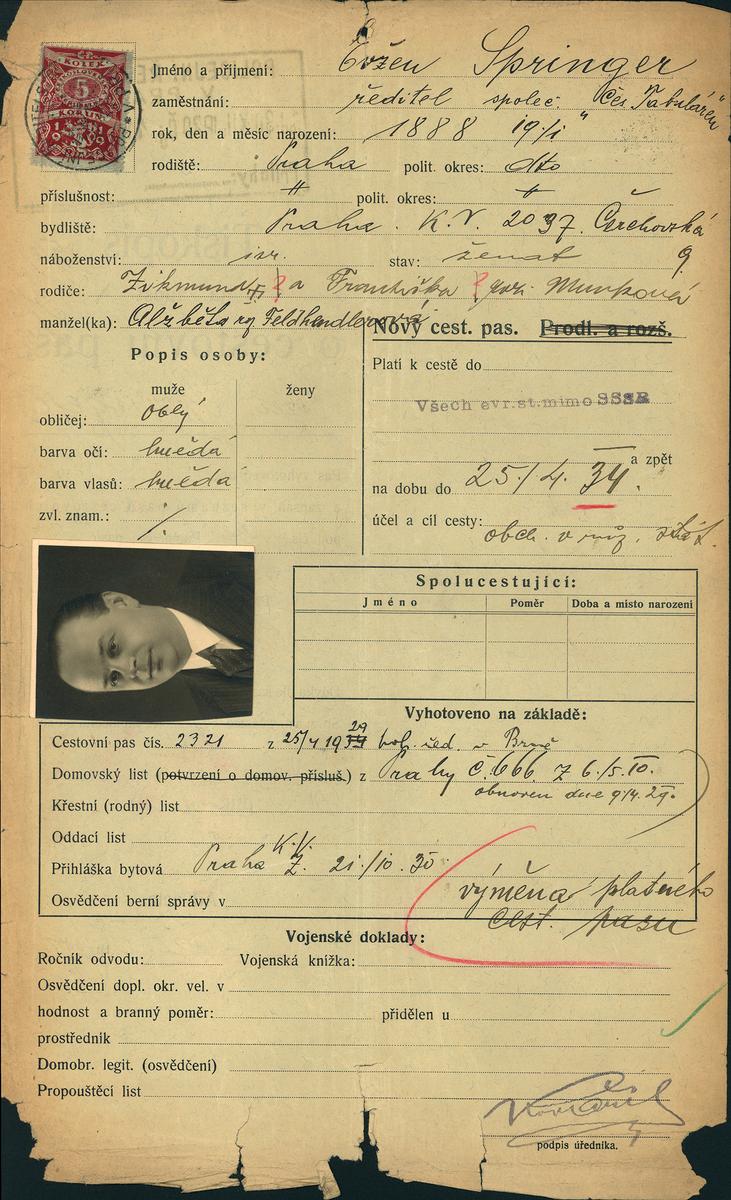 KOLEK
5
KORUN
Jméno a příjmení: Evžen Springer
zaměstnání: ředitel společ. "Čes. Tabuláren"
rok, den a měsíc narození: 1888 19./I
rodiště: Praha polit. okres: dto
příslušnost: " polit. okres: "
bydliště: Praha. K.V. 2037. Čerchovská
9
náboženství: isr. stav: ženat
rodiče: Zikmund ? a Františka ? roz. Munková
manžel(ka): Alžběta roz. Feldhendlerová
Nový cest. pas. Prodl. a rozš.
Popis osoby:
Platí k cestě do
muže ženy
Všech evr.st.mimo SSSR
obličej: oblý
barva očí: hnědá
a zpět
barva vlasů: hnědá
na dobu do 25/4. 34.
zvl. znam.: /.
účel a cíl cesty: obch. v růz. stát.
Spolucestující:
Jméno Poměr Doba a místo narození
Vyhotoveno na základě:
Cestovní pas čís. 2321 z 25/4 1929 pol. řed. v Brně
Domovský list (potvrzení o domov. přísluš.) z Prahy č. 666. z 6./5. 10.
obnoven dne 9/4. 29.
Křestní (rodný) list
Oddací list
Přihláška bytová Praha K.V. Z. 21./10. 30
Osvědčení berní správy v
výměna platného
cest. pasu
Vojenské doklady:
Ročník odvodu: Vojenská knížka:
Osvědčení dopl. okr. vel. v
hodnost a branný poměr: přidělen u
prostředník
Domobr. legit. (osvědčení)
Propouštěcí list
podpis úředníka.